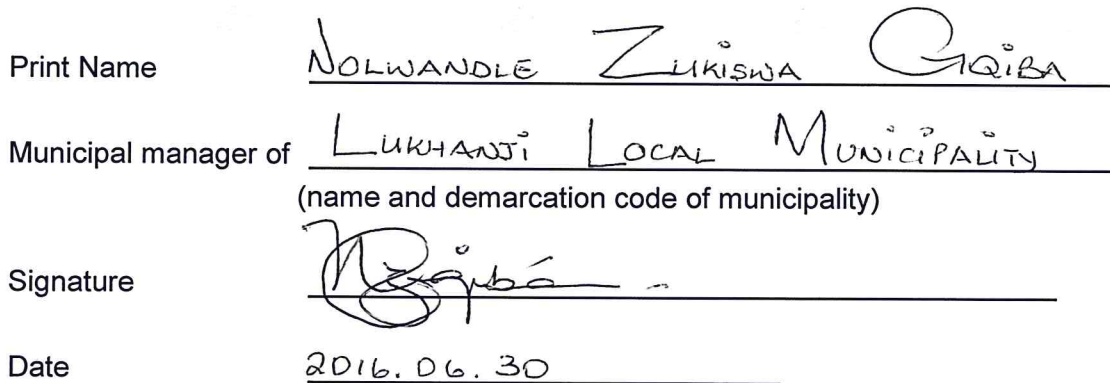 Print Name NOLWANDLE ZUKISWA GQIBA
Municipal manager of LUKHANJI LOCAL MUNICIPALITY
(name and demarcation code of municipality)
Signature
Date 2016.06.30